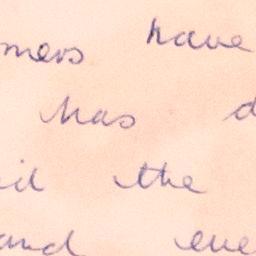 mers have
has d
id the
and eve